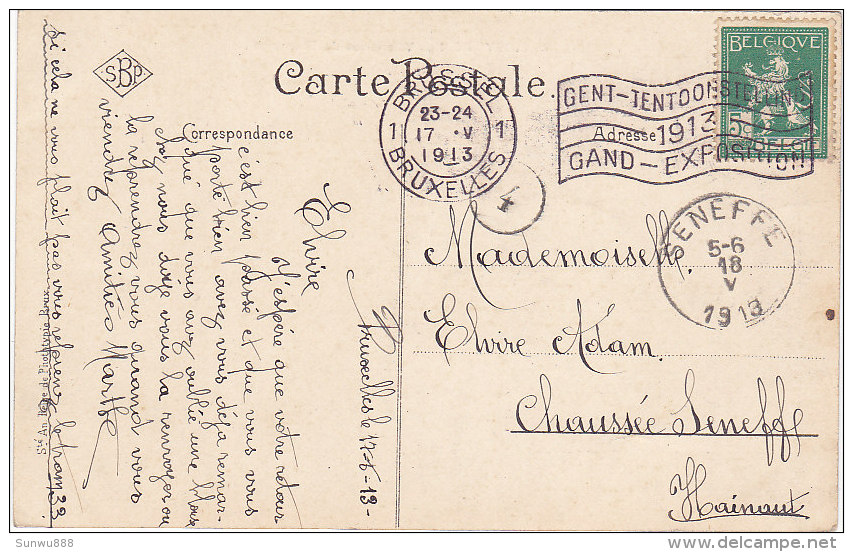 SBP
Carte Postale.
Correspondance
Adresse
BELGIQUE
5c
BELGIE
BRUSSEL
1 23-24 1
17 V
1913
BRUXELLES
GENT-TENTOONSTELLING
1913
GAND-EXPOSITION
4
SENEFFE
5-6
18
V
1913
Mademoiselle
Elvire Adam.
Chaussée Seneffe
Hainaut
Bruxelles le 17-5-13-
Elvire
J'espère que votre retour
c'est bien passé et que vous vous
porté bien avez vous déja remar-
qué que vous avez oublié une blouse
chez nous dois je vous la renvoyer ou
la reprendrez vous quand vous
viendrez Amitiés Marthe
si cela ne vous plait pas vous reprenez le tram 33
Sté An. Belge de Phototypie, Brux.
Sunwu888
delcampe.net